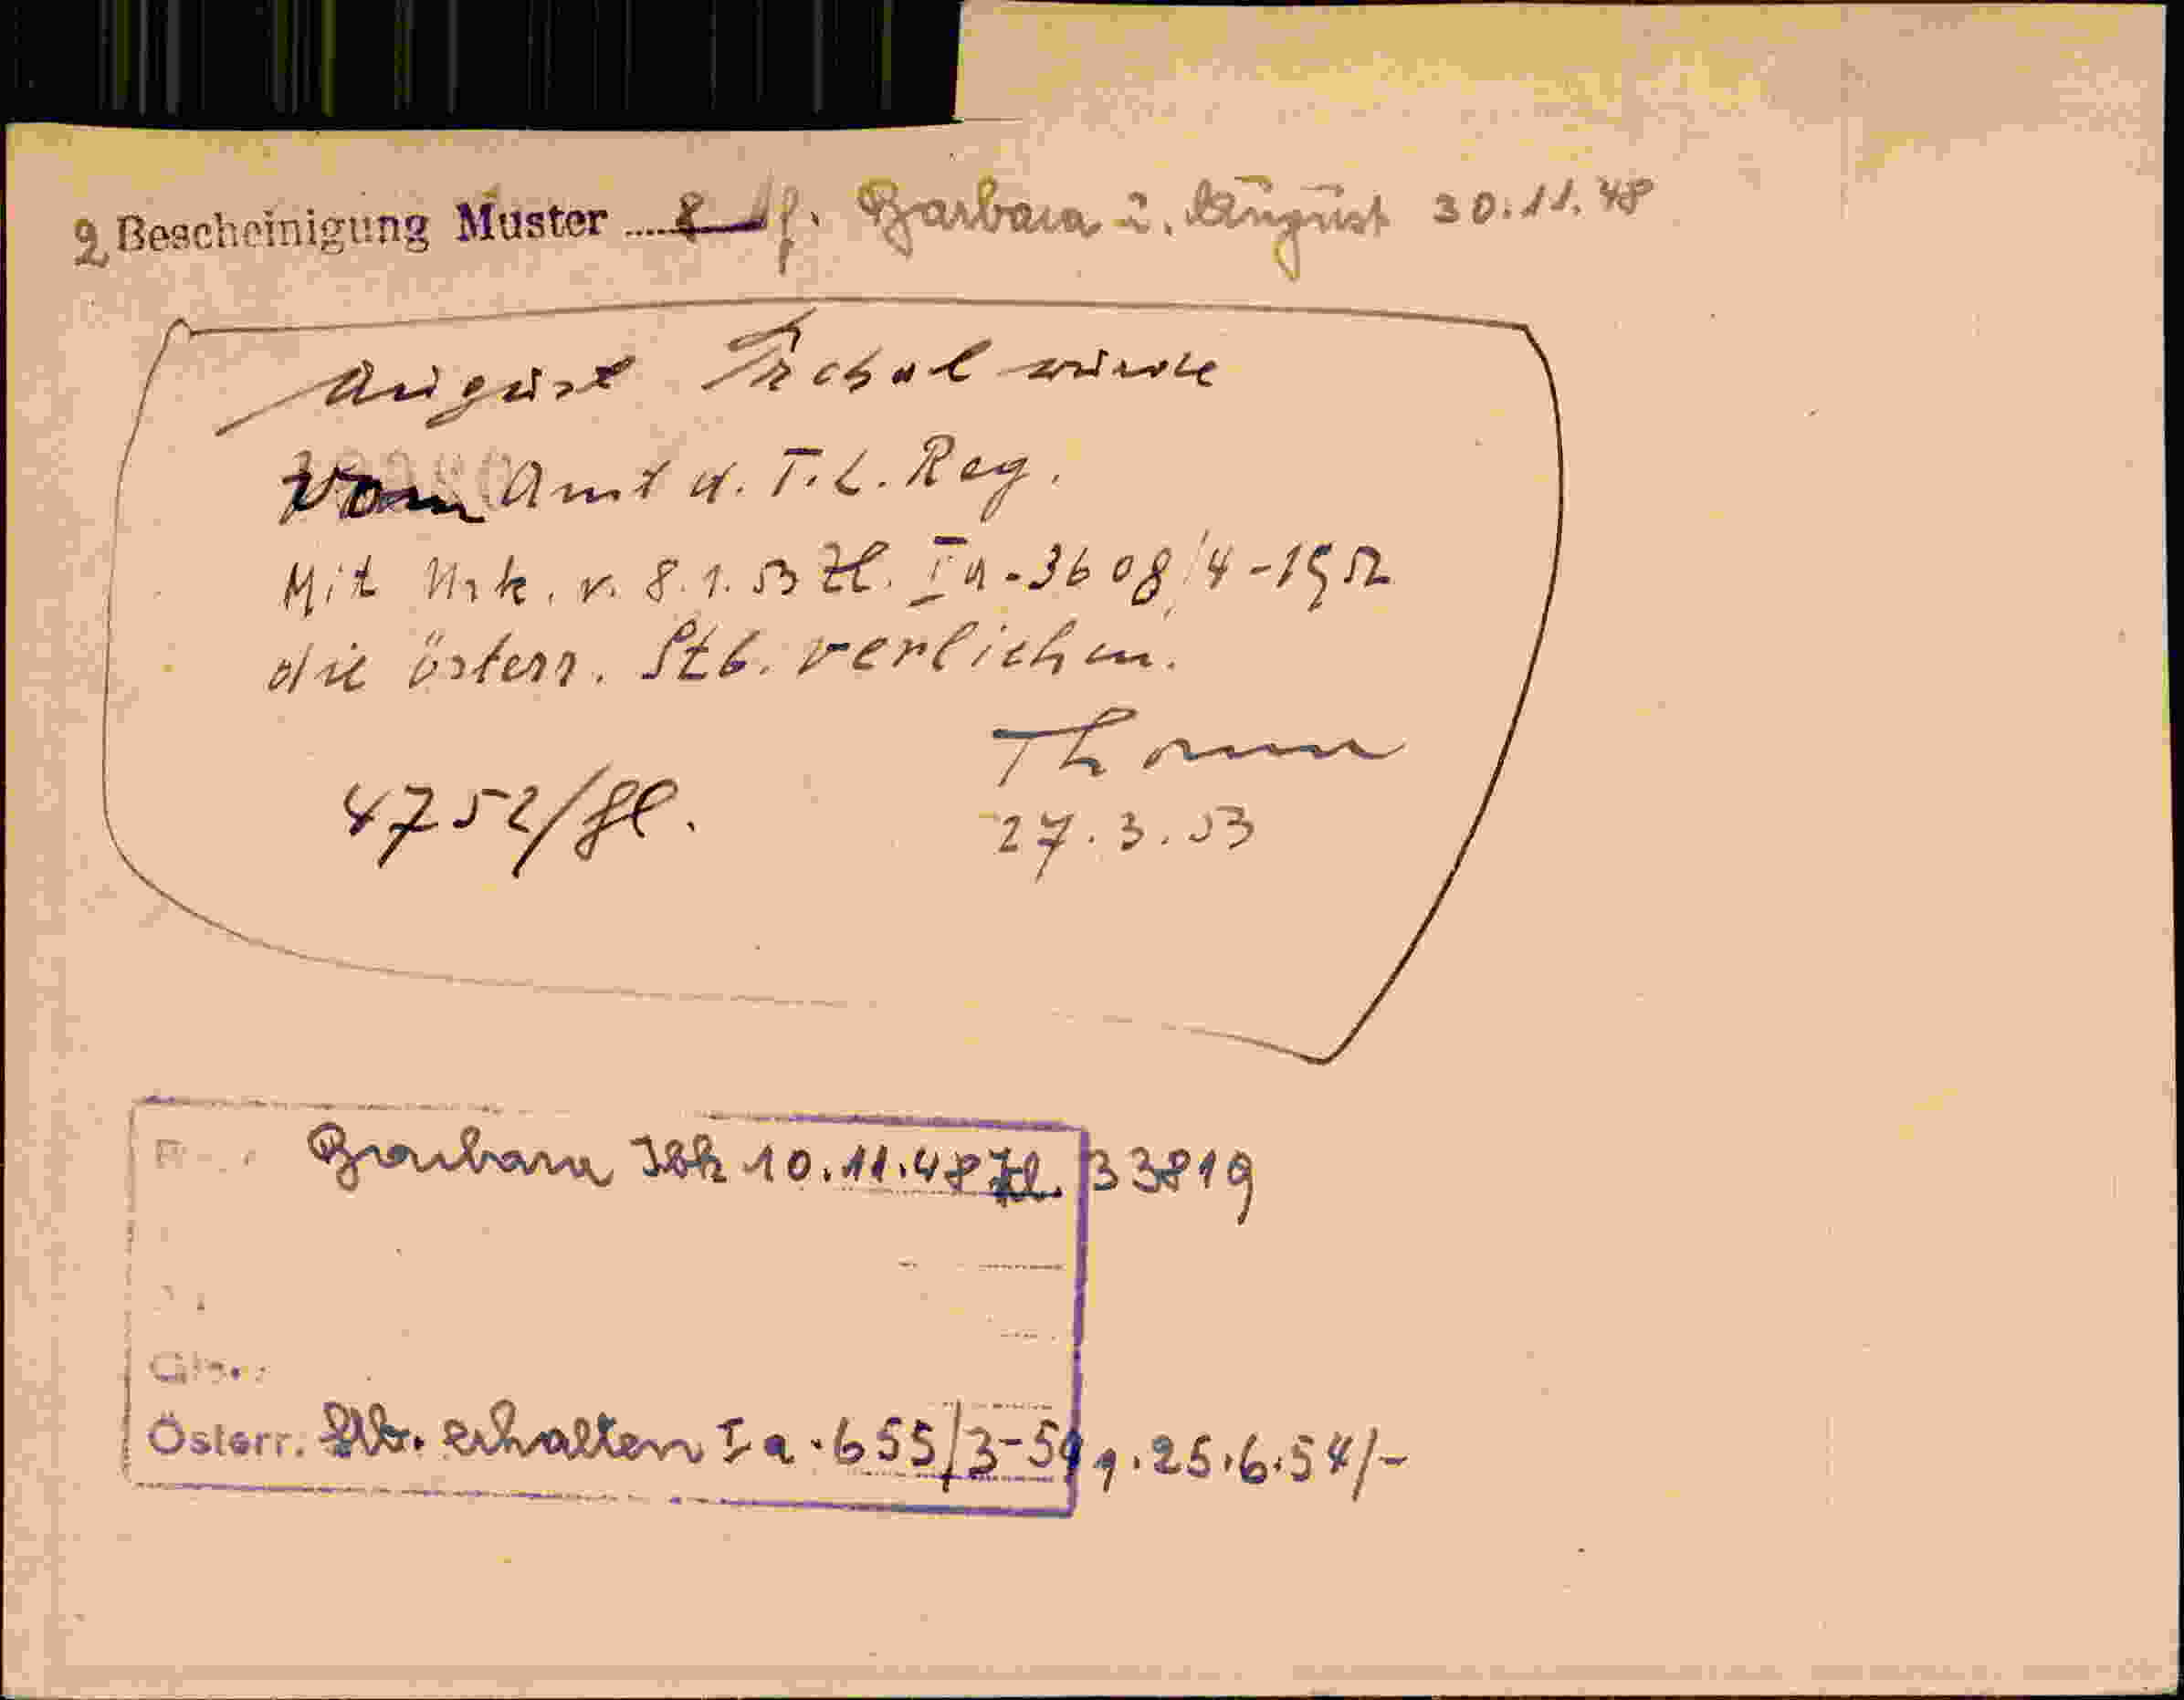 2 Bescheinigung Muster ..... 8 f. Barbara u. August 30.11.48
August Trebul wurde
vom Amt d. T. L. Reg.
Mit Urk. v. 8.1.53 Zl. Ia-3608/4-1952
die österr. Stb. verliehen.
Thoma
4752/fl. 27.3.53
Barbara Ibk 10.11.48 Zl. 33819
Österr. Stb. erhalten Ia-655/3-54, 25.6.54/-